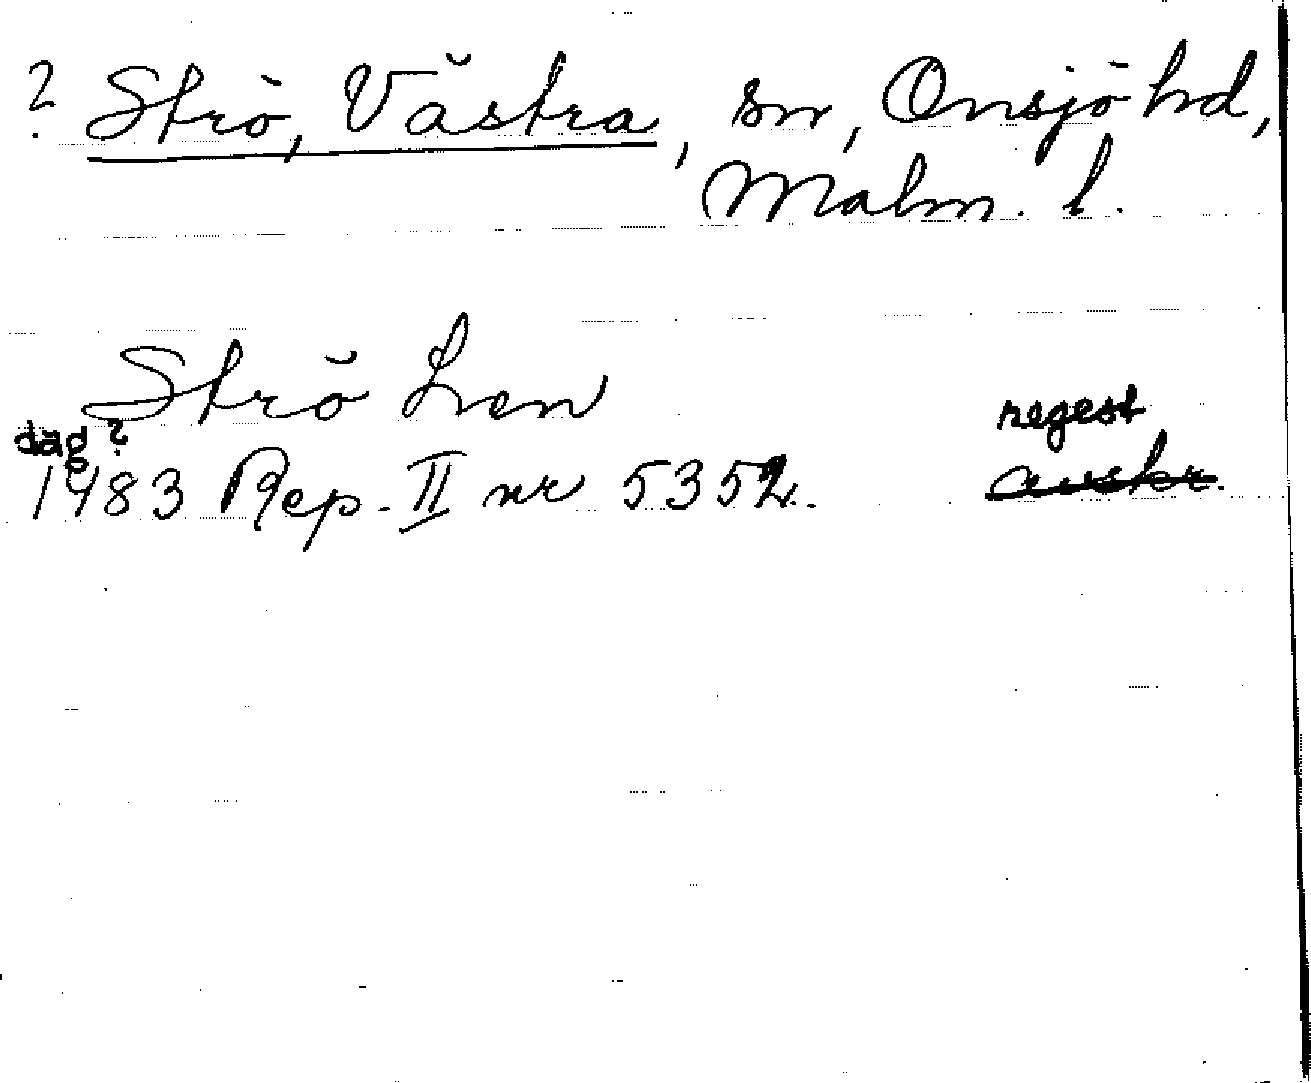 ? Strö, Västra, sn, Onsjö hd,
Malm. l.
Strö Len
regest
dag ?
1483 Rep. II nr 5352. avskr.